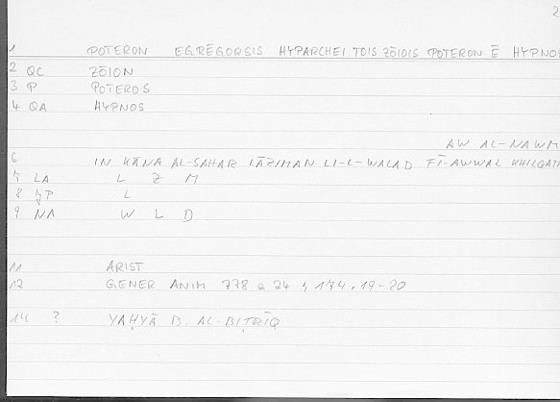 2
1 POTERON EGRĒGORSIS HYPARCHEI TOIS ZŌIOIS POTERON Ē HYPNOS
2 QC ZŌION
3 P POTEROS
4 QA HYPNOS
AW AL-NAWM
6 IN KĀNA AL-SAHAR LĀZIMAN LI-L-WALAD FĪ-AWWAL KHILQATI
7 LA L Z M
8 P L
9 NA W L D
11 ARIST
12 GENER ANIM 778 a 24 ; 174.19-20
14 ? YAḤYĀ B. AL-BIṬRĪQ